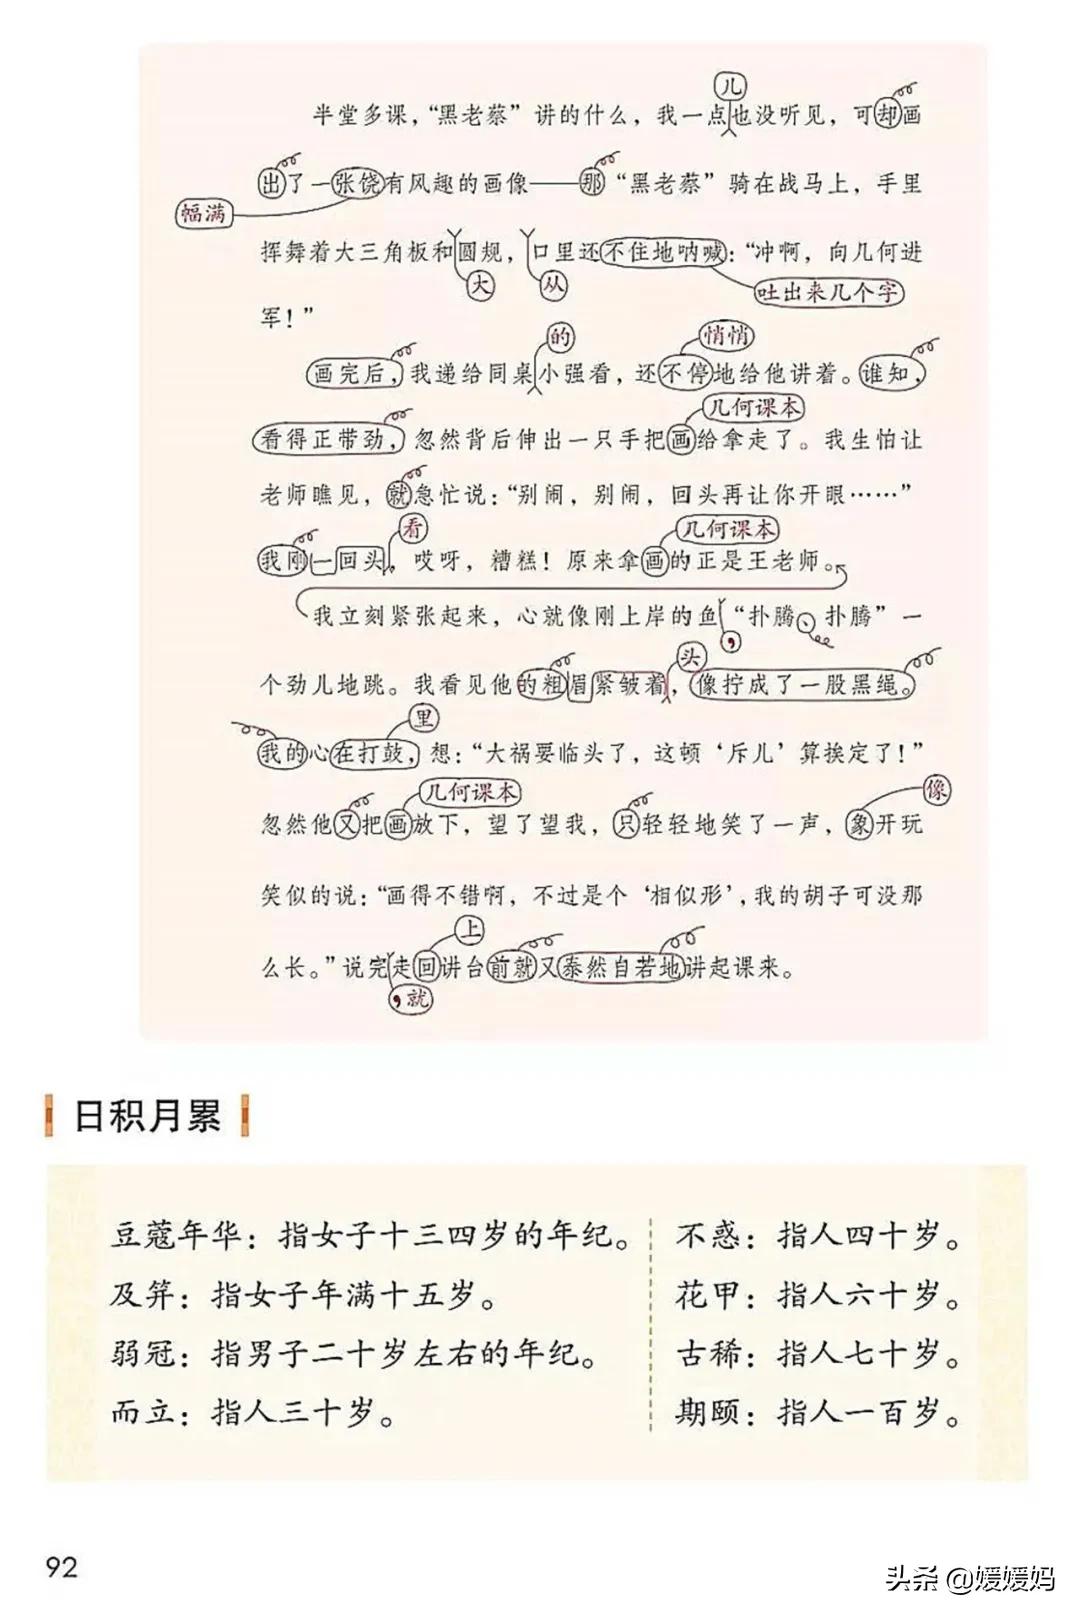 儿
半堂多课，“黑老蔡”讲的什么，我一点也没听见，可却画
出了一张饶有风趣的画像——那“黑老蔡”骑在战马上，手里
幅满
挥舞着大三角板和圆规，口里还不住地呐喊：“冲啊，向几何进
大 从 吐出来几个字
军！”
的 悄悄
画完后，我递给同桌小强看，还不停地给他讲着。谁知，
几何课本
看得正带劲，忽然背后伸出一只手把画给拿走了。我生怕让
老师瞧见，就急忙说：“别闹，别闹，回头再让你开眼……”
看 几何课本
我刚一回头，哎呀，糟糕！原来拿画的正是王老师。
我立刻紧张起来，心就像刚上岸的鱼“扑腾、扑腾”一
， 头
个劲儿地跳。我看见他的粗眉紧皱着，像拧成了一股黑绳。
里
我的心在打鼓，想：“大祸要临头了，这顿‘斥儿’算挨定了！”
几何课本 像
忽然他又把画放下，望了望我，只轻轻地笑了一声，象开玩
笑似的说：“画得不错啊，不过是个‘相似形’，我的胡子可没那
上
么长。”说完走回讲台前就又泰然自若地讲起课来。
，就
日积月累
豆蔻年华：指女子十三四岁的年纪。
及笄：指女子年满十五岁。
弱冠：指男子二十岁左右的年纪。
而立：指人三十岁。
不惑：指人四十岁。
花甲：指人六十岁。
古稀：指人七十岁。
期颐：指人一百岁。
92
头条 @媛媛妈